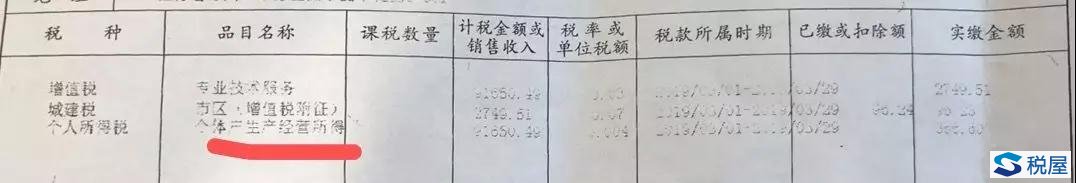 税 种 品目名称 课税数量 计税金额或销售收入 税率或单位税额 税款所属时期 已缴或扣除额 实缴金额
增值税 专业技术服务 91650.49 0.03 2019/03/01-2019/03/29 2749.51
城建税 市区（增值税附征） 2749.51 0.07 2019/03/01-2019/03/29 96.24 96.23
个人所得税 个体户生产经营所得 91650.49 0.004 2019/03/01-2019/03/29 366.60
税屋